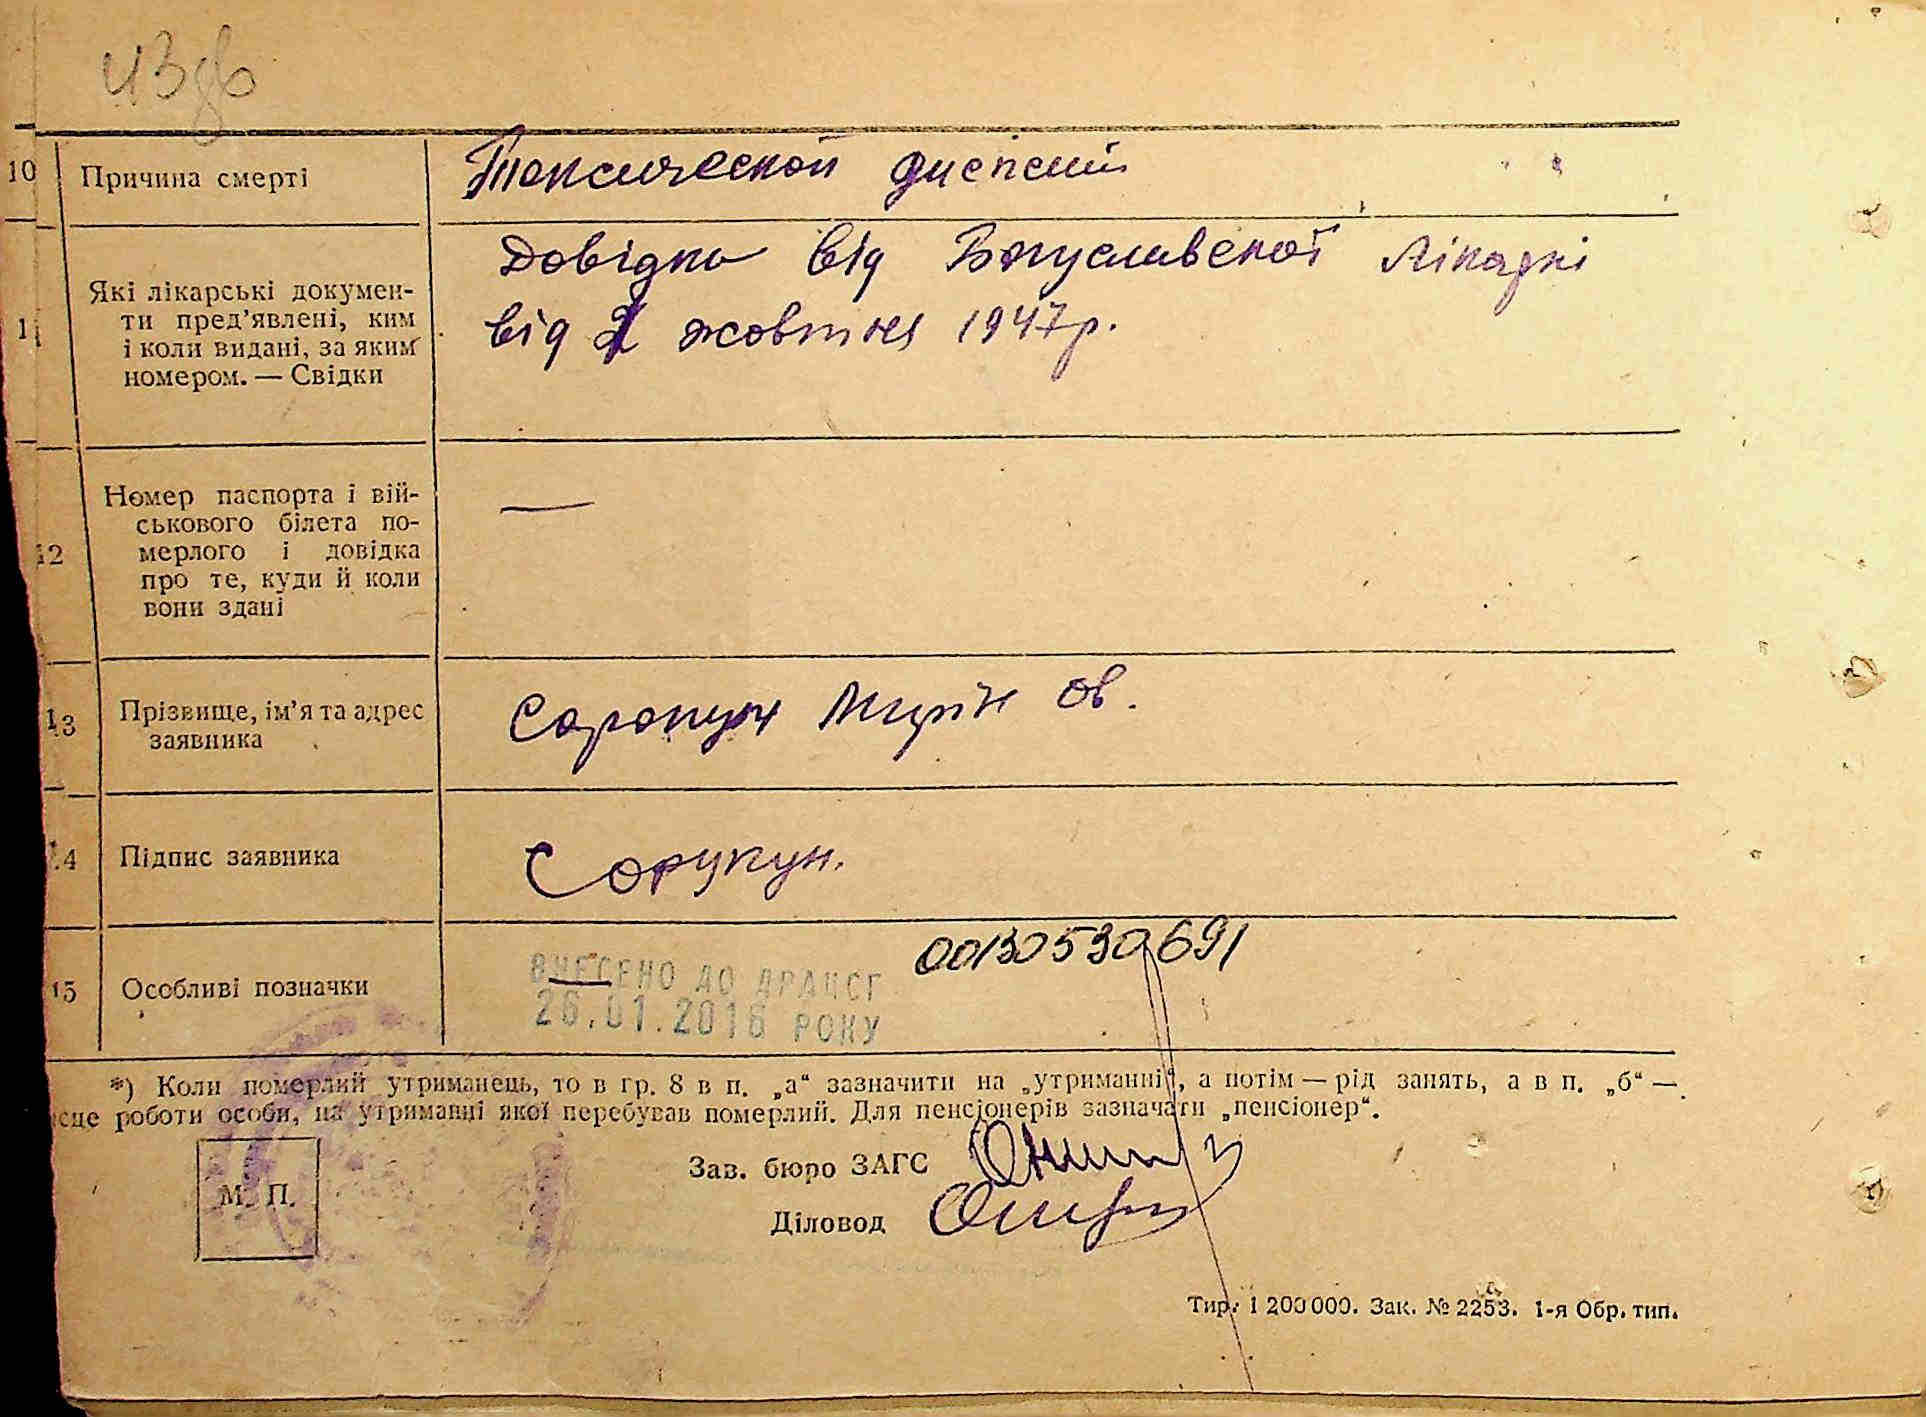 10 Причина смерті Токсической диспепсии
11 Які лікарські докумен-
ти пред'явлені, ким
і коли видані, за яким
номером. — Свідки
Довідка від Богуславской лікарні
від 2 жовтня 1947р.
12 Номер паспорта і вій-
ськового білета по-
мерлого і довідка
про те, куди й коли
вони здані
—
13 Прізвище, ім'я та адрес
заявника
14 Підпис заявника
15 Особливі позначки
00130530691
ВНЕСЕНО ДО ДРАЦСГ
26.01.2016 РОКУ
*) Коли померлий утриманець, то в гр. 8 в п. „а“ зазначити на „утриманні“, а потім — рід занять, а в п. „б“ —
сце роботи особи, на утриманні якої перебував померлий. Для пенсіонерів зазначати „пенсіонер“.
Зав. бюро ЗАГС
М. П.
Діловод
Тир. 1 200 000. Зак. № 2253. 1-я Обр. тип.